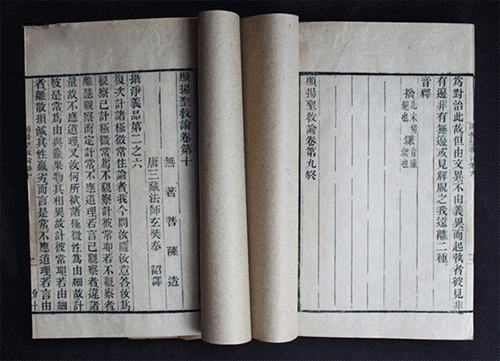 為對治此故但由文異不由義異而起執者彼見非
有邊非有無邊或見解脫之我遠離二種
音釋
撥
顯揚聖教論卷第九終
顯揚聖教論卷第十
無著菩薩造
唐三藏法師玄奘奉 詔譯
攝淨義品第二之六
復次計諸極微常性論者我今問汝隨汝意答汝為
觀察已計極微常為不觀察計彼常耶若不觀察者
離慧觀察而定計常不應道理若言已觀察者違諸
量故不應道理又汝何所欲諸極微性為由細故計
彼是常為由與麤果物其相異故計彼常耶若由細
者離散損減其性羸劣而言是常不應道理若言由